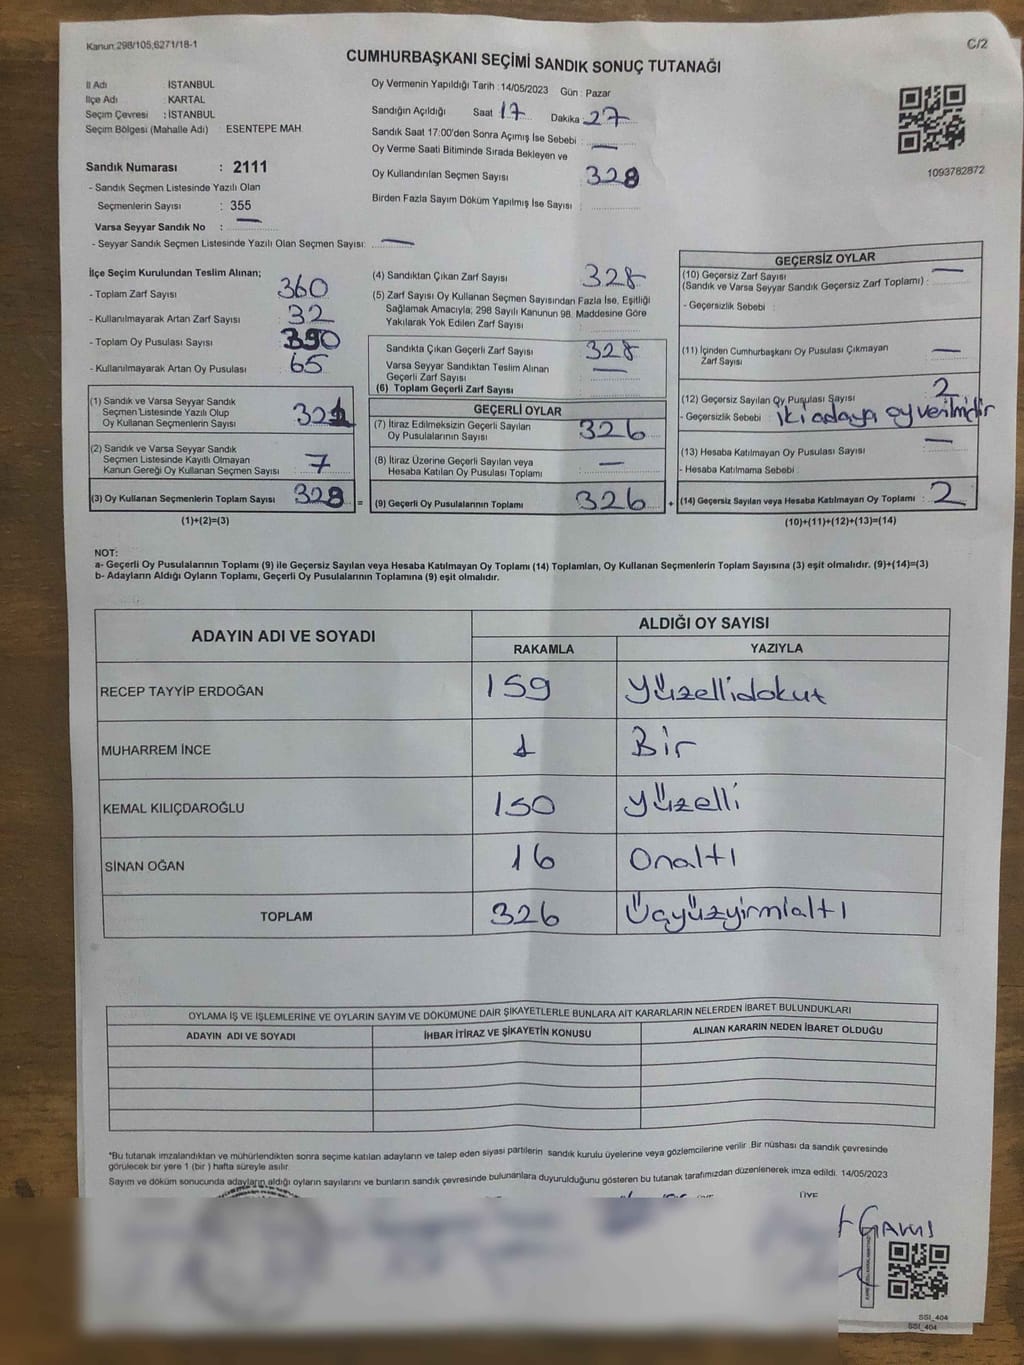 Kanun:298/105,6271/18-1
C/2
CUMHURBAŞKANI SEÇİMİ SANDIK SONUÇ TUTANAĞI
İl Adı İSTANBUL
İlçe Adı : KARTAL
Seçim Çevresi : İSTANBUL
Seçim Bölgesi (Mahalle Adı) : ESENTEPE MAH.
Oy Vermenin Yapıldığı Tarih : 14/05/2023 Gün : Pazar
Sandığın Açıldığı Saat 17 Dakika 27
Sandık Saat 17:00'den Sonra Açımış İse Sebebi : —
Oy Verme Saati Bitiminde Sırada Bekleyen ve
Oy Kullandırılan Seçmen Sayısı 328
Birden Fazla Sayım Döküm Yapılmış İse Sayısı :
1093782872
Sandık Numarası : 2111
- Sandık Seçmen Listesinde Yazılı Olan
Seçmenlerin Sayısı : 355
Varsa Seyyar Sandık No : —
- Seyyar Sandık Seçmen Listesinde Yazılı Olan Seçmen Sayısı: —
İlçe Seçim Kurulundan Teslim Alınan;
- Toplam Zarf Sayısı : 360
- Kullanılmayarak Artan Zarf Sayısı : 32
- Toplam Oy Pusulası Sayısı : 390
- Kullanılmayarak Artan Oy Pusulası : 65
(1) Sandık ve Varsa Seyyar Sandık
Seçmen Listesinde Yazılı Olup
Oy Kullanan Seçmenlerin Sayısı 321
(2) Sandık ve Varsa Seyyar Sandık
Seçmen Listesinde Kayıtlı Olmayan
Kanun Gereği Oy Kullanan Seçmen Sayısı 7
(3) Oy Kullanan Seçmenlerin Toplam Sayısı 328 =
(1)+(2)=(3)
(4) Sandıktan Çıkan Zarf Sayısı 328
(5) Zarf Sayısı Oy Kullanan Seçmen Sayısından Fazla İse, Eşitliği
Sağlamak Amacıyla; 298 Sayılı Kanunun 98. Maddesine Göre
Yakılarak Yok Edilen Zarf Sayısı :
Sandıkta Çıkan Geçerli Zarf Sayısı 328
Varsa Seyyar Sandıktan Teslim Alınan
Geçerli Zarf Sayısı : —
(6) Toplam Geçerli Zarf Sayısı
GEÇERLİ OYLAR
(7) İtiraz Edilmeksizin Geçerli Sayılan
Oy Pusulalarının Sayısı 326
(8) İtiraz Üzerine Geçerli Sayılan veya
Hesaba Katılan Oy Pusulası Toplamı —
(9) Geçerli Oy Pusulalarının Toplamı 326 +
GEÇERSİZ OYLAR
(10) Geçersiz Zarf Sayısı —
(Sandık ve Varsa Seyyar Sandık Geçersiz Zarf Toplamı) :
- Geçersizlik Sebebi :
(11) İçinden Cumhurbaşkanı Oy Pusulası Çıkmayan
Zarf Sayısı —
(12) Geçersiz Sayılan Oy Pusulası Sayısı 2
- Geçersizlik Sebebi : iki adaya oy verilmiştir
(13) Hesaba Katılmayan Oy Pusulası Sayısı —
- Hesaba Katılmama Sebebi
(14) Geçersiz Sayılan veya Hesaba Katılmayan Oy Toplamı : 2
(10)+(11)+(12)+(13)=(14)
NOT:
a- Geçerli Oy Pusulalarının Toplamı (9) ile Geçersiz Sayılan veya Hesaba Katılmayan Oy Toplamı (14) Toplamları, Oy Kullanan Seçmenlerin Toplam Sayısına (3) eşit olmalıdır. (9)+(14)=(3)
b- Adayların Aldığı Oyların Toplamı, Geçerli Oy Pusulalarının Toplamına (9) eşit olmalıdır.
ADAYIN ADI VE SOYADI ALDIĞI OY SAYISI
RAKAMLA YAZIYLA
RECEP TAYYİP ERDOĞAN 159 Yüzellidokut
MUHARREM İNCE 1 Bir
KEMAL KILIÇDAROĞLU 150 Yüzelli
SİNAN OĞAN 16 Onaltı
TOPLAM 326 Üçyüzyirmialtı
OYLAMA İŞ VE İŞLEMLERİNE VE OYLARIN SAYIM VE DÖKÜMÜNE DAİR ŞİKAYETLERLE BUNLARA AİT KARARLARIN NELERDEN İBARET BULUNDUKLARI
ADAYIN ADI VE SOYADI İHBAR İTİRAZ VE ŞİKAYETİN KONUSU ALINAN KARARIN NEDEN İBARET OLDUĞU
*Bu tutanak imzalandıktan ve mühürlendikten sonra seçime katılan adayların ve talep eden siyasi partilerin sandık kurulu üyelerine veya gözlemcilerine verilir. Bir nüshası da sandık çevresinde
görülecek bir yere 1 (bir ) hafta süreyle asılır.
Sayım ve döküm sonucunda adayların aldığı oyların sayılarını ve bunların sandık çevresinde bulunanlara duyurulduğunu gösteren bu tutanak tarafımızdan düzenlenerek imza edildi. 14/05/2023
ÜYE
SSI_404
SSI_404